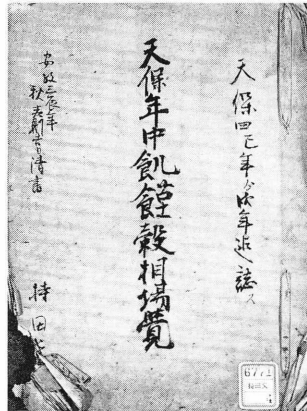 天保四巳年ゟ戌年迄誌ス
天保年中飢饉穀相場覺
安政三辰年
秋
清書
持田
6771